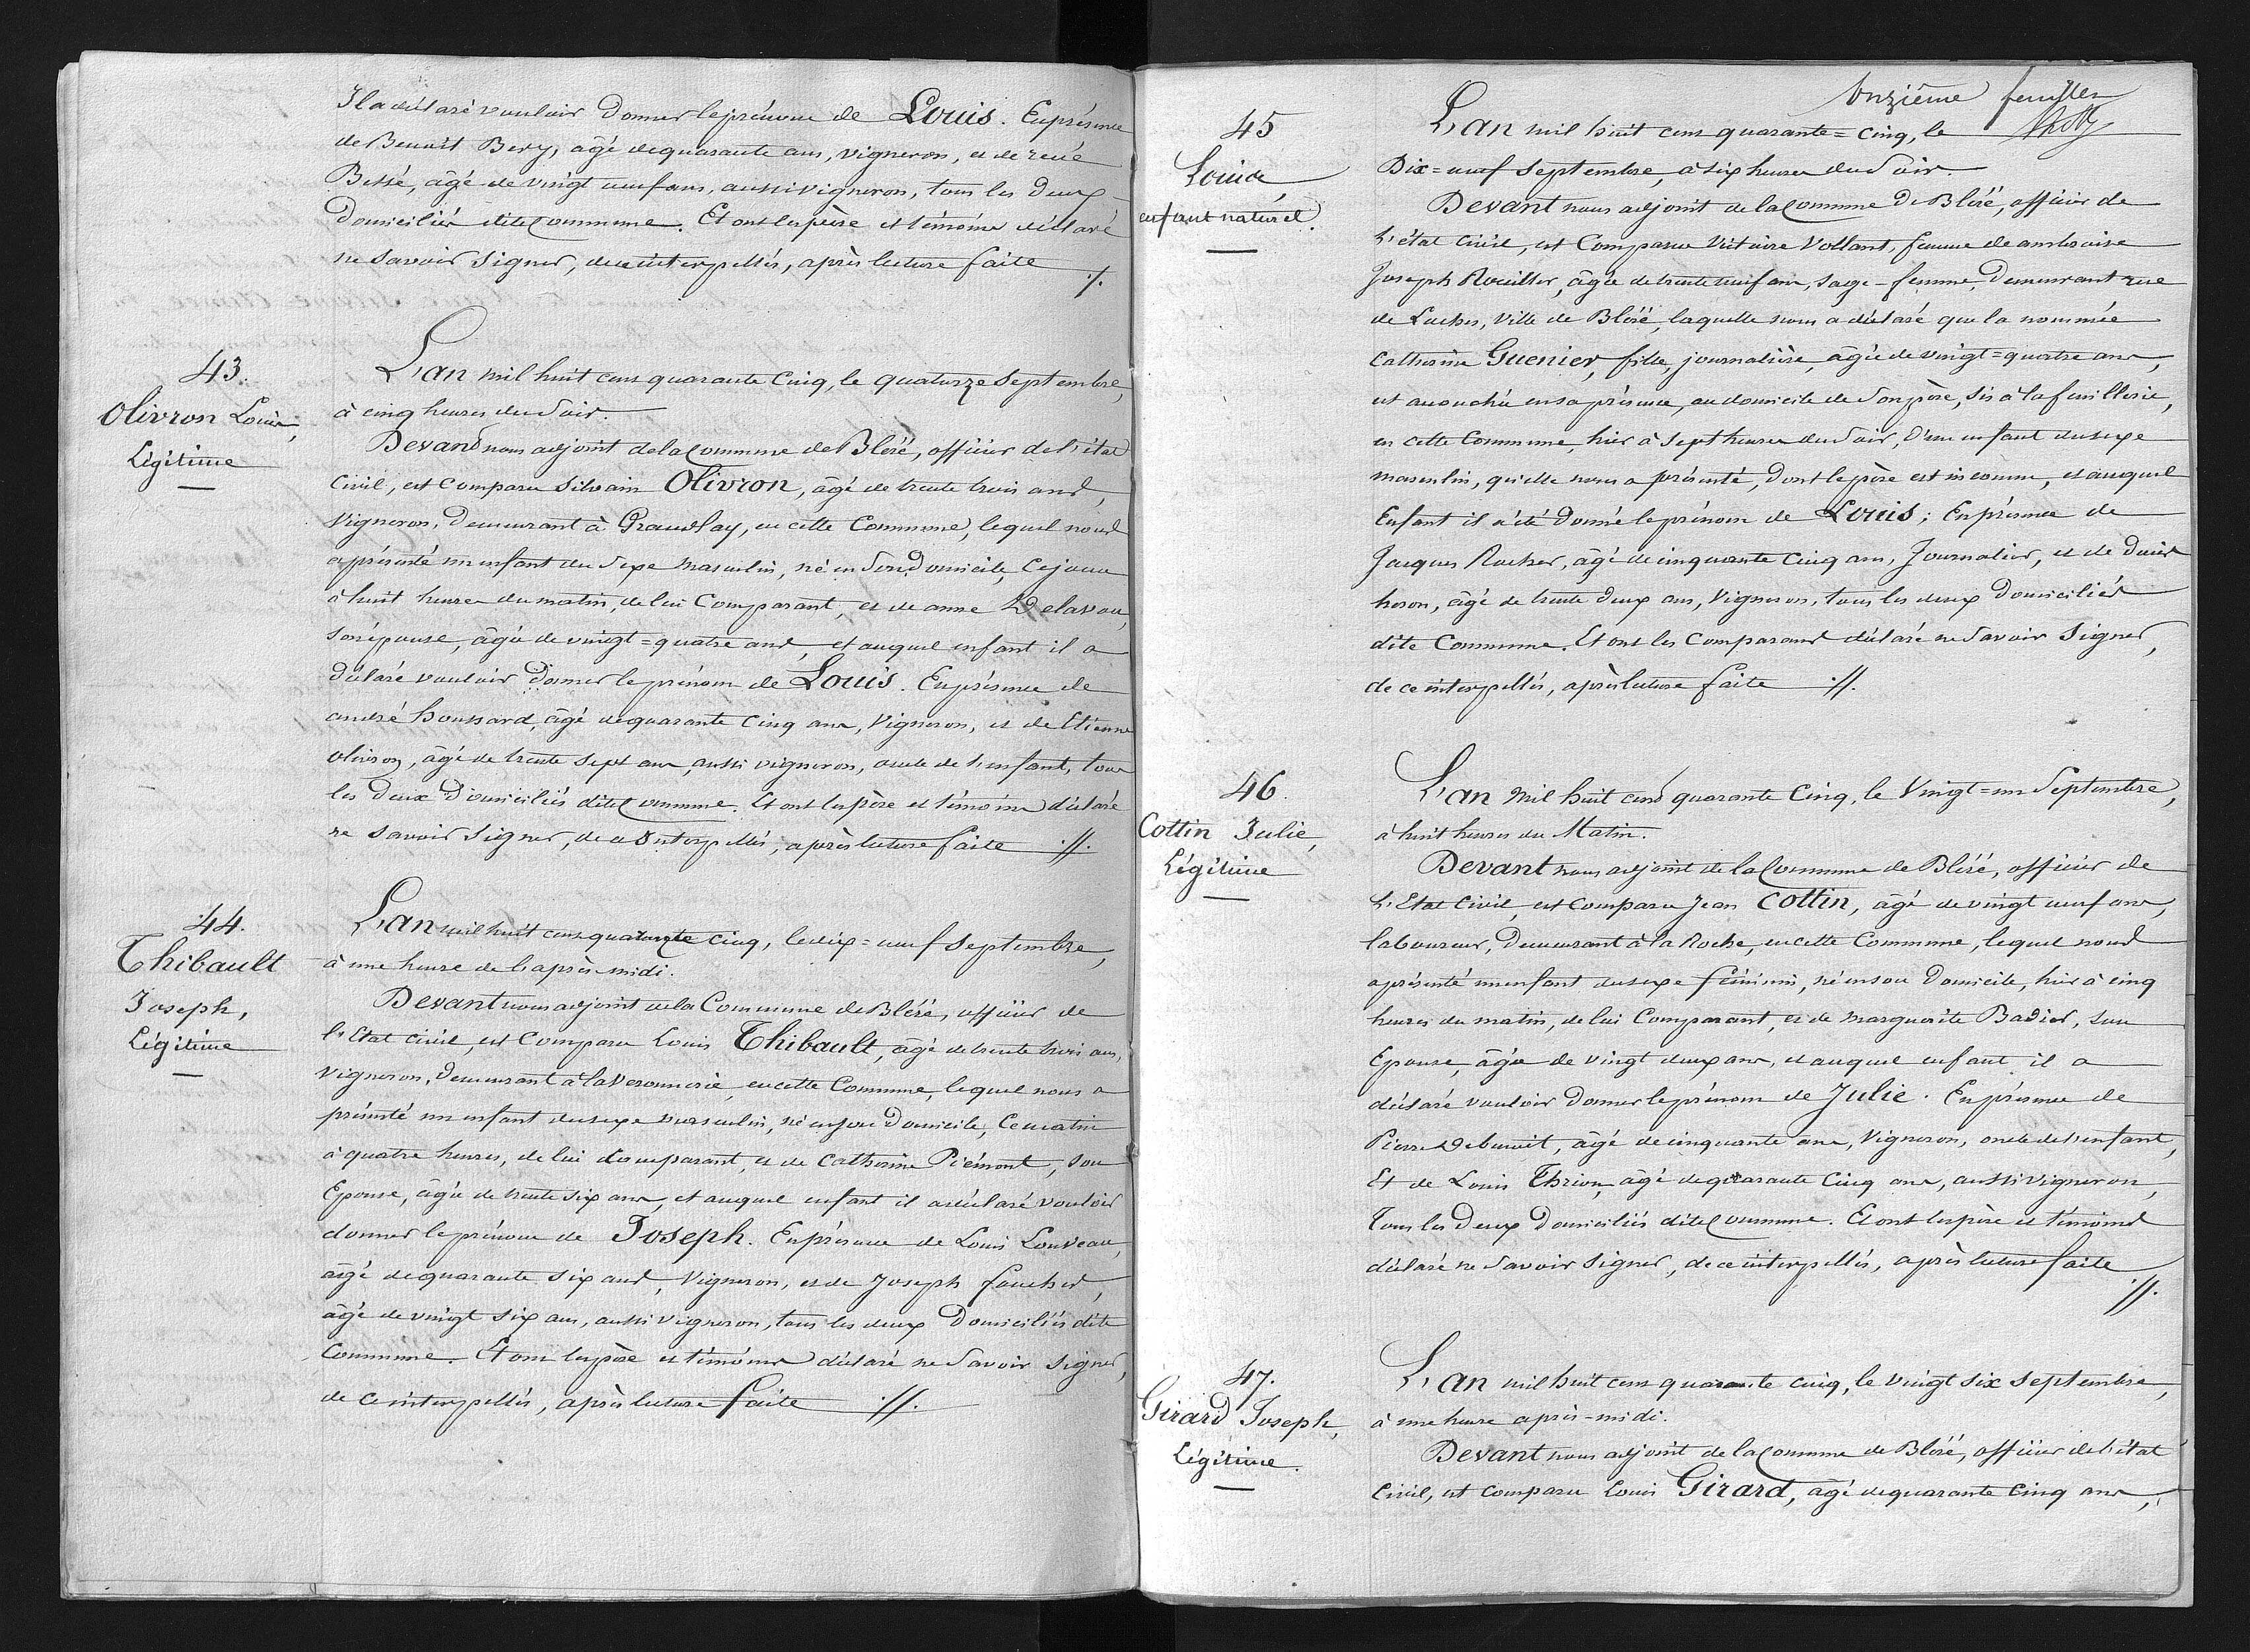 Il a déclaré vouloir donner le prénom de Louis. En présence
de Benoit Bery, âgé de quarante ans, vigneron, et de rené
Bessé, âgé de vingt neuf ans, aussi vigneron, tous les deux
domiciliés dite Commune. Et ont les père et témoins déclaré
ne savoir signer, de ce interpellés, après lecture faite ./.
43.
Olivron Louis,
Légitime
L'an mil huit cens quarante Cinq, le quatorze Septembre,
à cinq heures du Soir.
Devant nous adjoint de la Commune de Bléré, officier de l'état
Civil, est Comparu Silvain Olivron, âgé de trente trois ans,
Vigneron, demeurant à Grandlay, en cette Commune, lequel nous
a présenté un enfant du Sexe Masculin, né en son Domicile, Cejour
à huit heures du matin, de lui Comparant, et de anne Delavau,
son épouse, âgée de vingt=quatre ans, et auquel enfant il a
déclaré vouloir donner le prénom de Louis. En présence de
andré houssard, âgé de quarante Cinq ans, Vigneron, et de Etienne
olivron, âgé de trente sept ans, aussi vigneron, oncle de l'enfant, tous
les deux Domiciliés dite Commune. Et ont les père et témoins déclaré
ne savoir signer, de ce Interpellés, après lecture faite .//.
44.
Thibault
Joseph,
Légitime
L'an mil huit cens quarante Cinq, le dix=neuf Septembre,
à une heure de l'après-midi.
Devant nous adjoint de la Commune de Bléré, officier de
l'Etat Civil, est Comparu Louis Thibault, âgé de trente trois ans,
vigneron, demeurant à la Veronnerie, en cette Commune, lequel nous a
présenté un enfant du sexe masculin, né en son Domicile, Ce matin
à quatre heures, de lui Comparant, et de Catherine Piémont, Son
Epouse, âgée de trente six ans, et auquel enfant il a déclaré vouloir
donner le prénom de Joseph. En présence de Louis Louveau,
âgé de quarante Six ans, Vigneron, et de Joseph foucher,
âgé de vingt Six ans, aussi vigneron, tous les deux Domiciliés dite
Commune. Et ont les père et témoins déclaré ne Savoir Signer,
de ce interpellés, après lecture faite .//.
Onzième feuillet
45
Louis
enfant naturel.
L'an mil huit cens quarante=cinq, le
Dix=neuf Septembre, à six heures du Soir.
Devant nous adjoint de la Commune De Bléré, officier de
L'état Civil, est Comparue Victoire Vollant, femme de ambroise
Joseph Rouiller, âgée de trente neuf ans, sage-femme, demeurant rue
de Loches, Ville de Bléré, laquelle nous a déclaré que la nommée
Catherine Guenier, fille, journalière, âgée de vingt=quatre ans,
est accouchée en sa présence, au domicile de Son père, Sis à la feuillerie,
en cette Commune, hier à Sept heures du Soir, d'un enfant du sexe
masculin, qu'elle nous a présenté, Dont le père est inconnu, et auquel
Enfant il a été donné le prénom de Louis; En présence de
Jacques Rocher, âgé de cinquante Cinq ans, Journalier, et de
âgé de trente Deux ans, Vigneron, tous les deux Domiciliés
dite Commune. Et ont les Comparans déclaré ne Savoir Signer,
de ce interpellés, après lecture faite .//.
46.
Cottin Julie,
Légitime
L'an Mil huit cens quarante Cinq, le Vingt=un Septembre,
à huit heures du Matin.
Devant nous adjoint de la Commune de Bléré, officier de
L'Etat Civil, est Comparu Jean Cottin, âgé de vingt neuf ans,
laboureur, Demeurant à la Roche, en cette Commune, lequel nous
a présenté un enfant du sexe féminin, né en son Domicile, hier à cinq
heures du matin, de lui Comparant, et de Marguerite Badier, Son
Epouse, âgée de vingt deux ans, et auquel enfant il a
déclaré vouloir donner le prénom de Julie. En présence de
Pierre Debenoit, âgé de cinquante ans, Vigneron, oncle de l'enfant,
Et de Louis Thrion, âgé de quarante Cinq ans, aussi vigneron,
Tous les Deux Domiciliés dite Commune. Et ont les père et témoins
déclaré ne Savoir Signer, de ce interpellés, après lecture faite
.//.
47.
Girard Joseph,
Légitime.
L'an mil huit cens quarante cinq, le vingt six Septembre,
à une heure après-midi.
Devant nous adjoint de la Commune de Bléré, officier de l'état
Civil, est comparu Louis Girard, âgé de quarante Cinq ans,